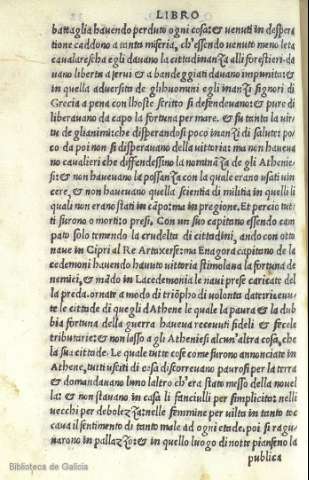 LIBRO
battaglia havendo perduto ogni cosa: & venuti in despera
tione caddono a tanta miseria, ch'essendo venuto meno le ta
cavalaresche egli davano la cittadinanza alli forestieri-da
vano liberta a servi & a bandeggiati davano impunita: &
in quella adversita de glihuomeni egli inanzi signori di
Grecia a pena con lhoste scritto si defendevano: & pure di
liberavano da capo la fortuna per mare. & fu tanta la vir
tu de glianimi: che disperandosi poco inanzi di salute: po
co da poi non si disperavano della vittoria: ma non haveva
no cavalieri che diffendessino la nominanza de gli Athenie
si: & non havevano la possanza con la quale erano usati vin
cere, & non havevano quella scientia di militia in quelli li
quali non erano stati in cāpo: ma in pregione. Et percio tut
ti furono o morti: o presi. Con un suo capitano essendo cam
pato solo temendo la crudelta di cittadini, ando con otto
nave in Cipri al Re Artaxersez: ma Enagora capitano de la
cedemoni havendo havuto vittoria stimolava la fortuna de
nemici, & mādo in Lacedemonia le navi prese caricate del
la preda. ornate a modo di triōpho di volonta
te le cittade di quegli d Athene le quale la paura & la dub
bia fortuna della guerra haveva recevuti fideli &
tributarie: & non lasso a gli Atheniesi alcun'altra cosa, che
la sua cittade. Le quale tutte cose come furono annonciate in
Athene, tutti usciti di casa discorrevano paurosi per la terra
& domandavano luno laltro ch'era stato messo della novel
la: & non stavano in casa li fanciulli per simplicitoz: nelli
vecchi per debolezza: nelle femmine per vilta in tanto toc
cava il sentimento di tanto male ad ogni etade, poi si ragu
navano in pallazzo: & in quello luogo di notte pianseno la
publica
Biblioteca de Galicia